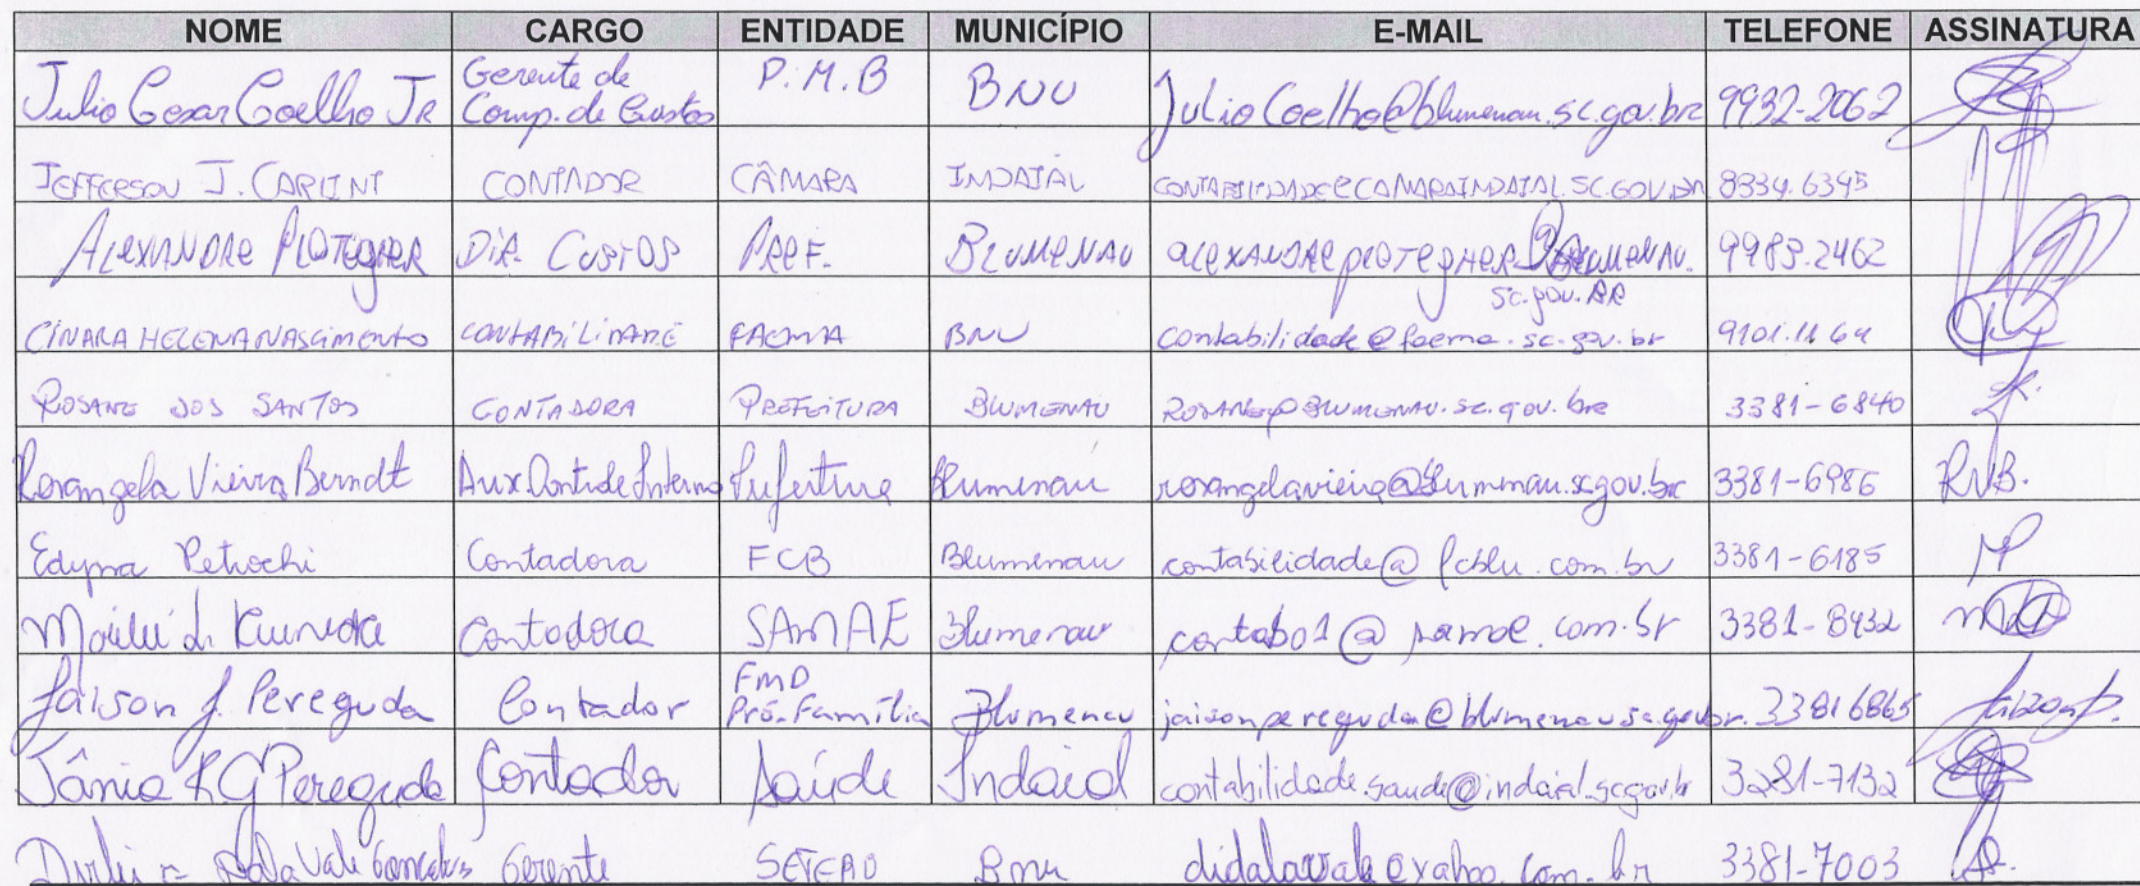 NOME CARGO ENTIDADE MUNICÍPIO E-MAIL TELEFONE ASSINATURA
Julio Cesar Coelho Jr Gerente de Comp. de Custos P.M.B BNU JulioCoelho@blumenau.sc.gov.br 9932-2062
JEFFERSON J. CARLINI CONTADOR CÂMARA INDAIAL CONTABILIDADE@CAMARAINDAIAL.SC.GOV.BR 8834.6345
ALEXANDRE PROTEGHER DIR. CUSTOS PREF. BLUMENAU alexandreprotegher@BLUMENAU.sc.gov.BR 9983.2462
CINARA HELENA NASCIMENTO CONTABILIDADE FAEMA BNU contabilidade@faema.sc.gov.br 9101.1164
ROSANE DOS SANTOS CONTADORA PREFEITURA BLUMENAU ROSANE@BLUMENAU.sc.gov.br 3381-6840
Rosangela Vieira Berndt Aux. Controle Interno Prefeitura Blumenau rosangelavieira@blumenau.sc.gov.br 3381-6986 RVB.
Edyna Petrochi Contadora FCB Blumenau contabilidade@fcblu.com.br 3381-6185
Contadora SAMAE Blumenau contab01@samae.com.br 3381-8432
Jaison J. Pereguda Contador FMD Pró-Família Blumenau jaisonpereguda@blumenau.sc.gov.br. 33816865
Tânia R G Pereguda Contador Saúde Indaial contabilidade.saude@indaial.sc.gov.br 3281-7132
Dala Vale Goncalves Gerente Bnu didalavale@yahoo.com.br 3381-7003